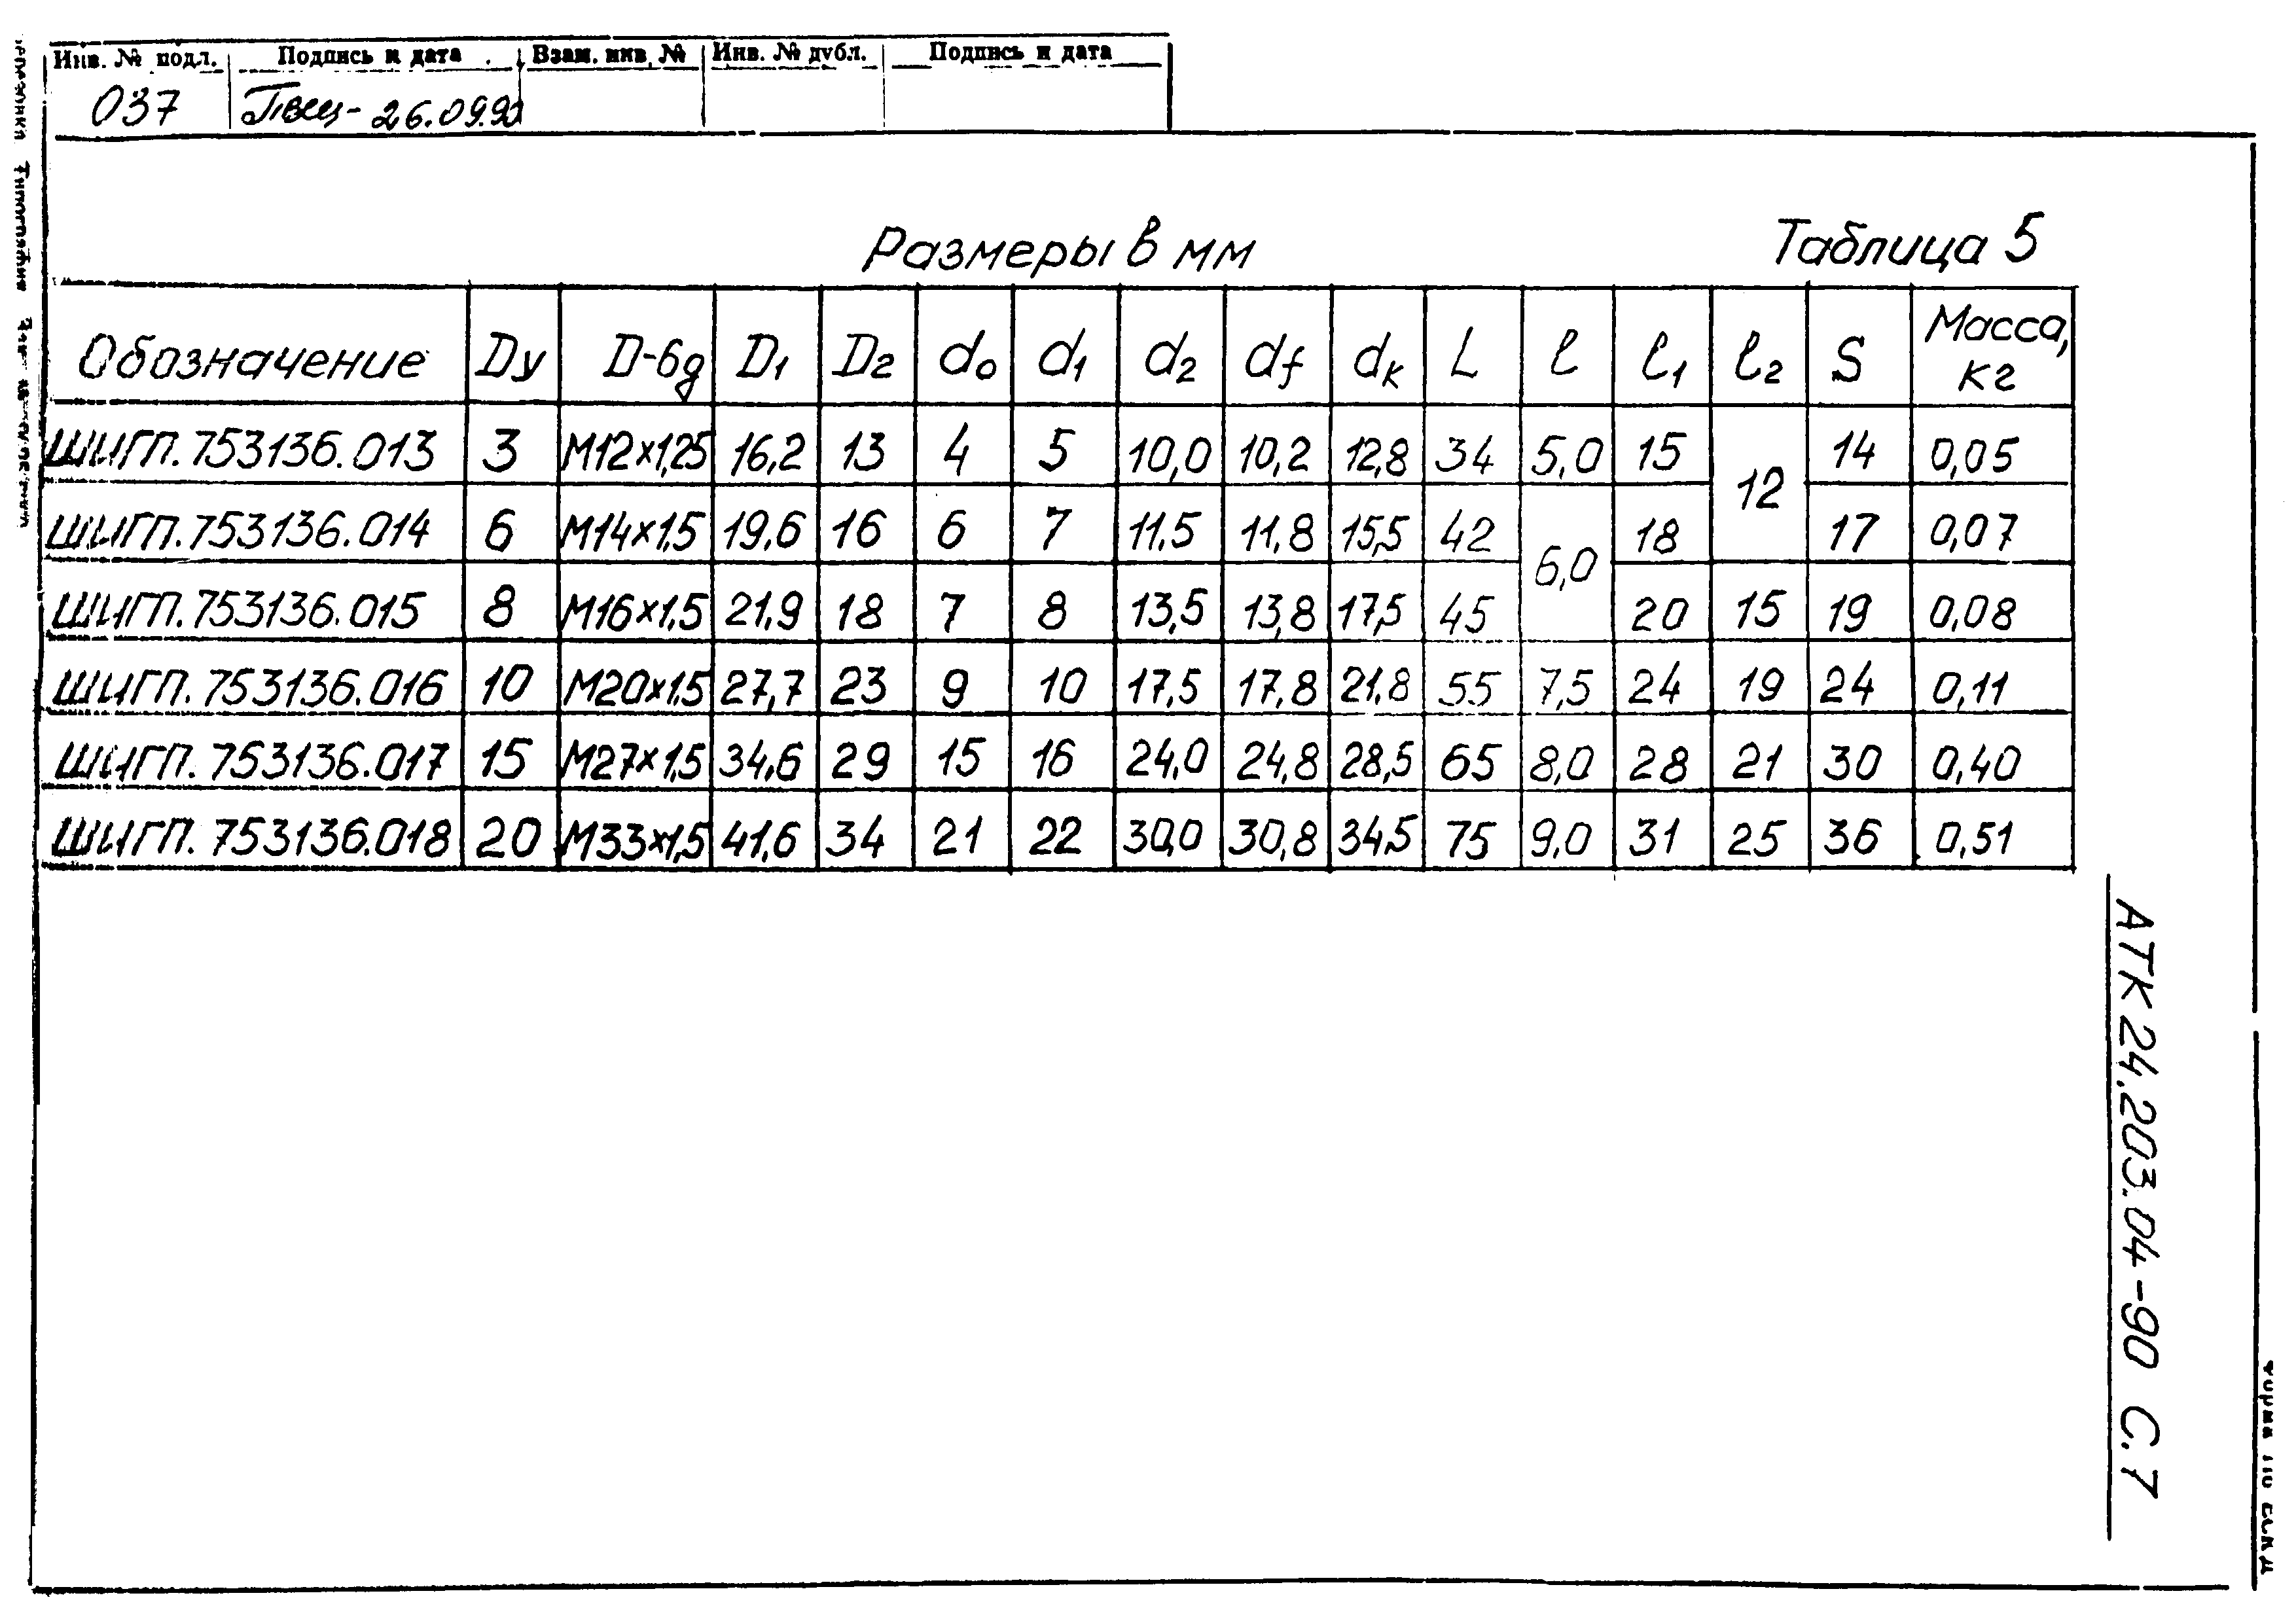 Инв. № подл. Подпись и дата Взам. инв. № Инв. № дубл. Подпись и дата
037 26.09.90
Размеры в мм Таблица 5
Обозначение Dу D-6g D1 D2 d0 d1 d2 df dк L l l1 l2 S Масса, кг
ШИГП.753136.013 3 М12×1,25 16,2 13 4 5 10,0 10,2 12,8 34 5,0 15 12 14 0,05
ШИГП.753136.014 6 М14×1,5 19,6 16 6 7 11,5 11,8 15,5 42 6,0 18 17 0,07
ШИГП.753136.015 8 М16×1,5 21,9 18 7 8 13,5 13,8 17,5 45 20 15 19 0,08
ШИГП.753136.016 10 М20×1,5 27,7 23 9 10 17,5 17,8 21,8 55 7,5 24 19 24 0,11
ШИГП.753136.017 15 М27×1,5 34,6 29 15 16 24,0 24,8 28,5 65 8,0 28 21 30 0,40
ШИГП.753136.018 20 М33×1,5 41,6 34 21 22 30,0 30,8 34,5 75 9,0 31 25 36 0,51
АТК 24.203.04-90 С.7